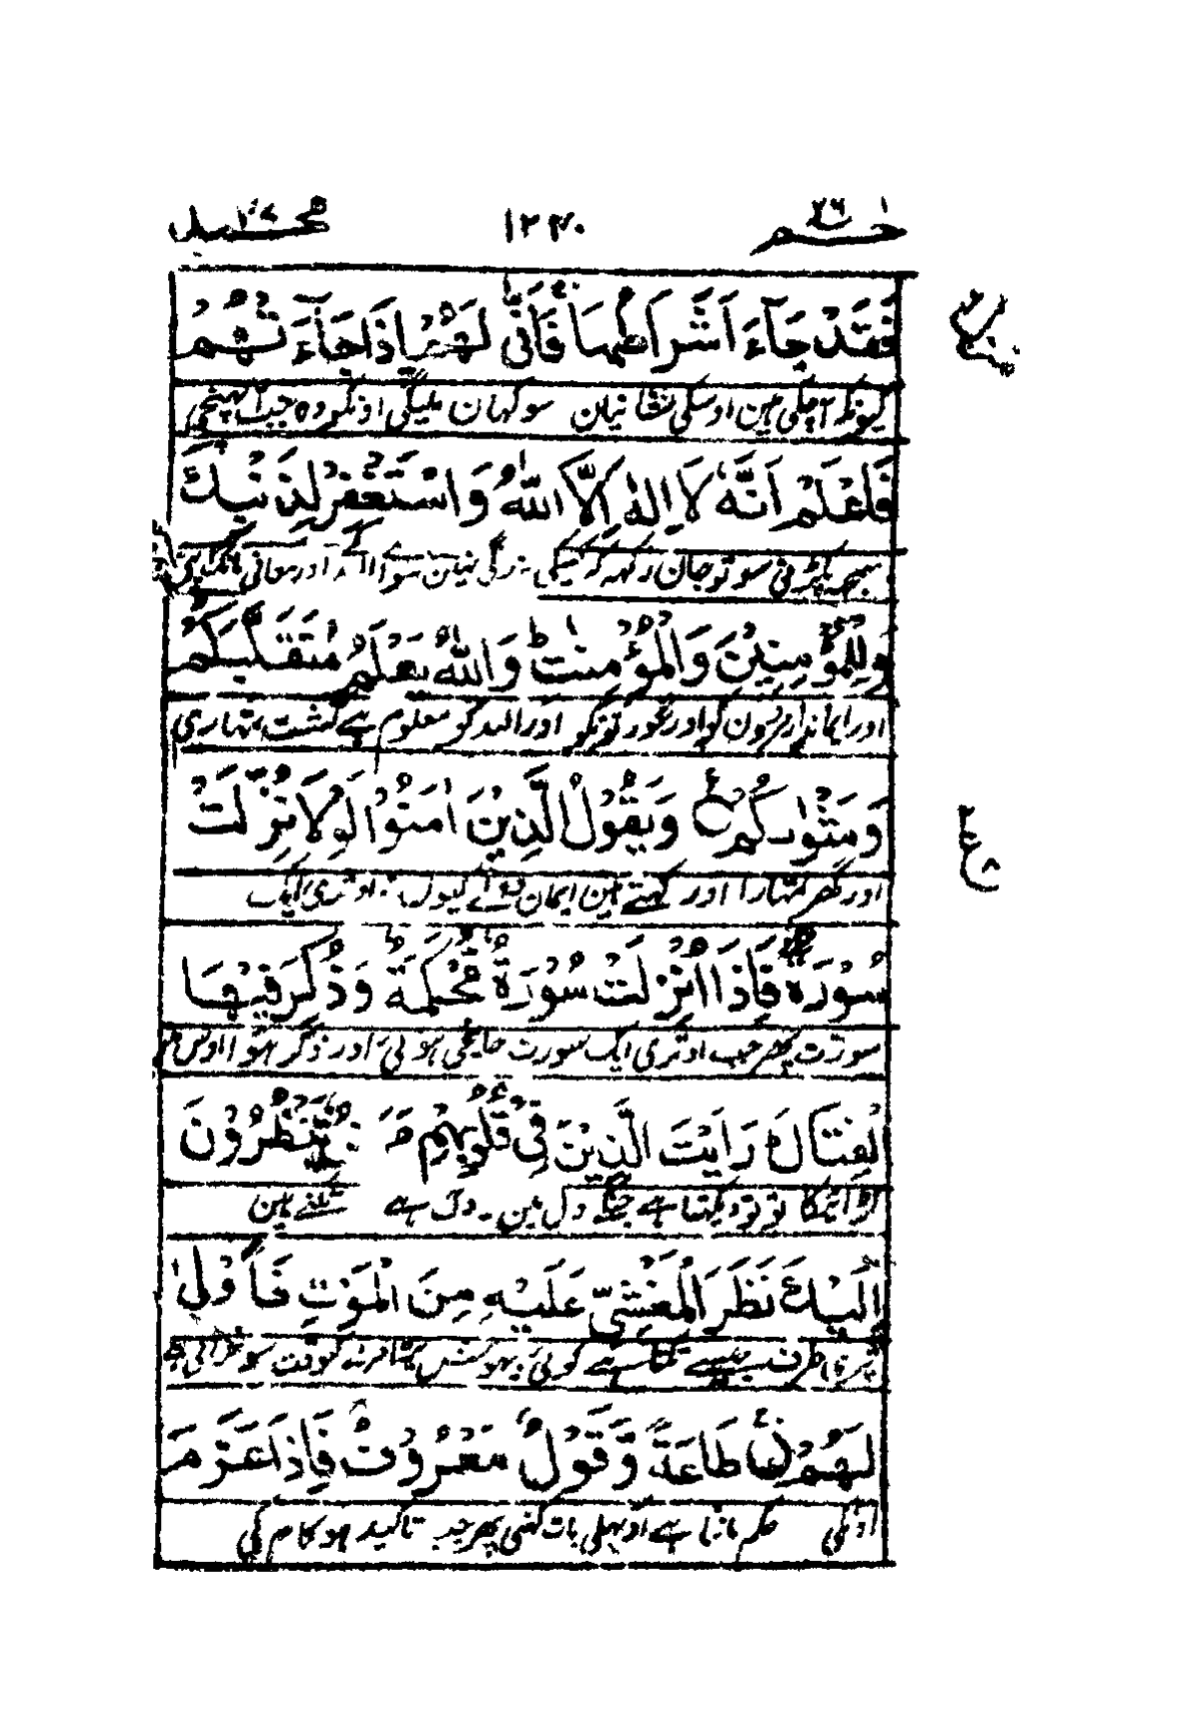 حٰم ٢٦ ١٢٢٠ محمد ٤٧
فَقَدْ جَآءَ اَشْرَاطُهَا فَاَنّٰى لَهُمْ اِذَا جَآءَتْهُمْ
کیونکہ آچکی ہین اوسکی نشانیان سو کہان ملیگی اونکو وہ جب آپہنچی
فَاعْلَمْ اَنَّهٗ لَاۤ اِلٰهَ اِلَّا اللّٰهُ وَاسْتَغْفِرْ لِذَنْۢبِكَ
سمجہہ پکڑنی سو تو جان رکہہ کہ کسیکی بندگی نہین سوائے اللہ کے اور معافی مانگ اپنی
وَلِلْمُؤْمِنِيْنَ وَالْمُؤْمِنٰتِ ؕ وَاللّٰهُ يَعْلَمُ مُتَقَلَّبَكُمْ
اور ایماندار مردون کو اور عورتونکو اور اللہ کو معلوم ہے گشت تمہاری
وَمَثْوٰىكُمْ ع وَيَقُوْلُ الَّذِيْنَ اٰمَنُوْا لَوْلَا نُزِّلَتْ
اور گھر تمہارا اور کہتے ہین ایمان والے کیون نہ اوتری ایک
سُوْرَةٌ ۚ فَاِذَاۤ اُنْزِلَتْ سُوْرَةٌ مُّحْكَمَةٌ وَّذُكِرَ فِيْهَا
سورت پھر جب اوتری ایک سورت جانچی ہوئی اور ذکر ہوا اوس مین
الْقِتَالُ ۙ رَاَيْتَ الَّذِيْنَ فِيْ قُلُوْبِهِمْ مَّرَضٌ يَّنْظُرُوْنَ
لڑائیکا تو تو دیکہتا ہے جنکے دل مین روگ ہے تکتے ہین
اِلَيْكَ نَظَرَ الْمَغْشِيِّ عَلَيْهِ مِنَ الْمَوْتِ ؕ فَاَوْلٰى
تیری طرف جیسے تکتا ہے کوئی بیہوش مرنے کے وقت سو خرابی ہے
لَهُمْ ۚ طَاعَةٌ وَّقَوْلٌ مَّعْرُوْفٌ ۫ فَاِذَا عَزَمَ
اونکی حکم ماننا ہے اور بہلی بات کہنی پھر جب تاکید ہو کام کی